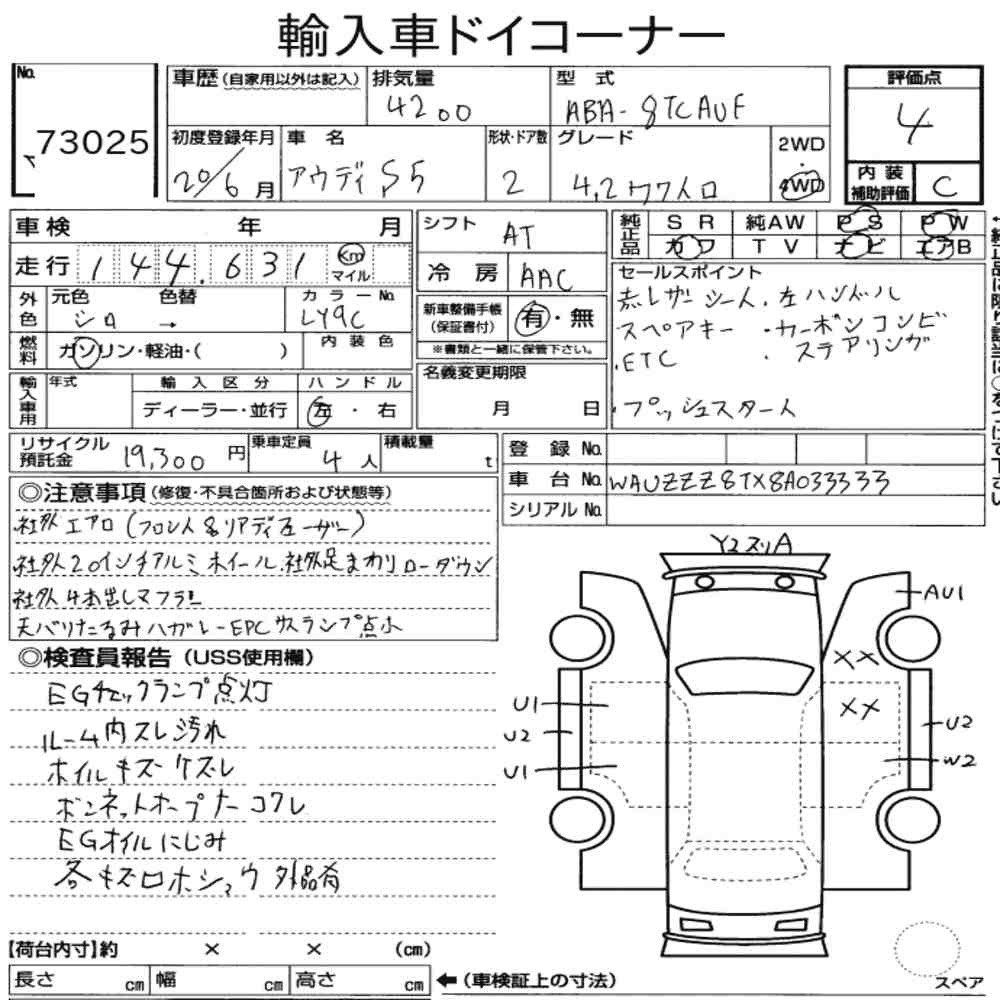 輸入車ドイコーナー
No. 73025
車歴 (自家用以外は記入) 排気量 4200 型式 ABA-8TCAUF
評価点 4
初度登録年月 20/6月 車名 アウディ S5 形状・ドア数 2 グレード 4,2クワトロ 2WD・4WD
内装補助評価 C
車検 年 月
走行 144,631 Km マイル
シフト AT
冷房 AAC
純正品 SR 純AW PS PW
カワ TV ナビ エアB
外色 元色 シロ 色替 → カラーNo. LY9C
燃料 ガソリン・軽油・( ) 内装色
新車整備手帳 (保証書付) 有・無
※書類と一緒に保管下さい。
セールスポイント
赤レザーシート.左ハンドル
スペアキー ・カーボンコンビ
.ETC ・ステアリング
・プッシュスタート
輸入車用 年式 輸入区分 ディーラー・並行 ハンドル 左・右
名義変更期限 月 日
リサイクル預託金 19,300円 乗車定員 4人 積載量 t
登録No.
車台No. WAUZZZ8TX8A033333
シリアルNo.
◎注意事項 (修復・不具合箇所および状態等)
社外エアロ (フロント&リアディフューザー)
社外20インチアルミホイール.社外足まわりローダウン
社外4本出しマフラー
天バリたるみハガレ-EPCサスランプ点小
◎検査員報告 (USS使用欄)
EGチェックランプ点灯
ルーム内スレ汚れ
ホイルキズケズレ
ボンネットオープナーコワレ
EGオイルにじみ
各キズロホシュウ 外品有
Y2ヌリA
AU1
XX
XX
U1
U2
U1
U2
W2
【荷台内寸】約 × × (cm)
長さ cm 幅 cm 高さ cm ← (車検証上の寸法)
スペア